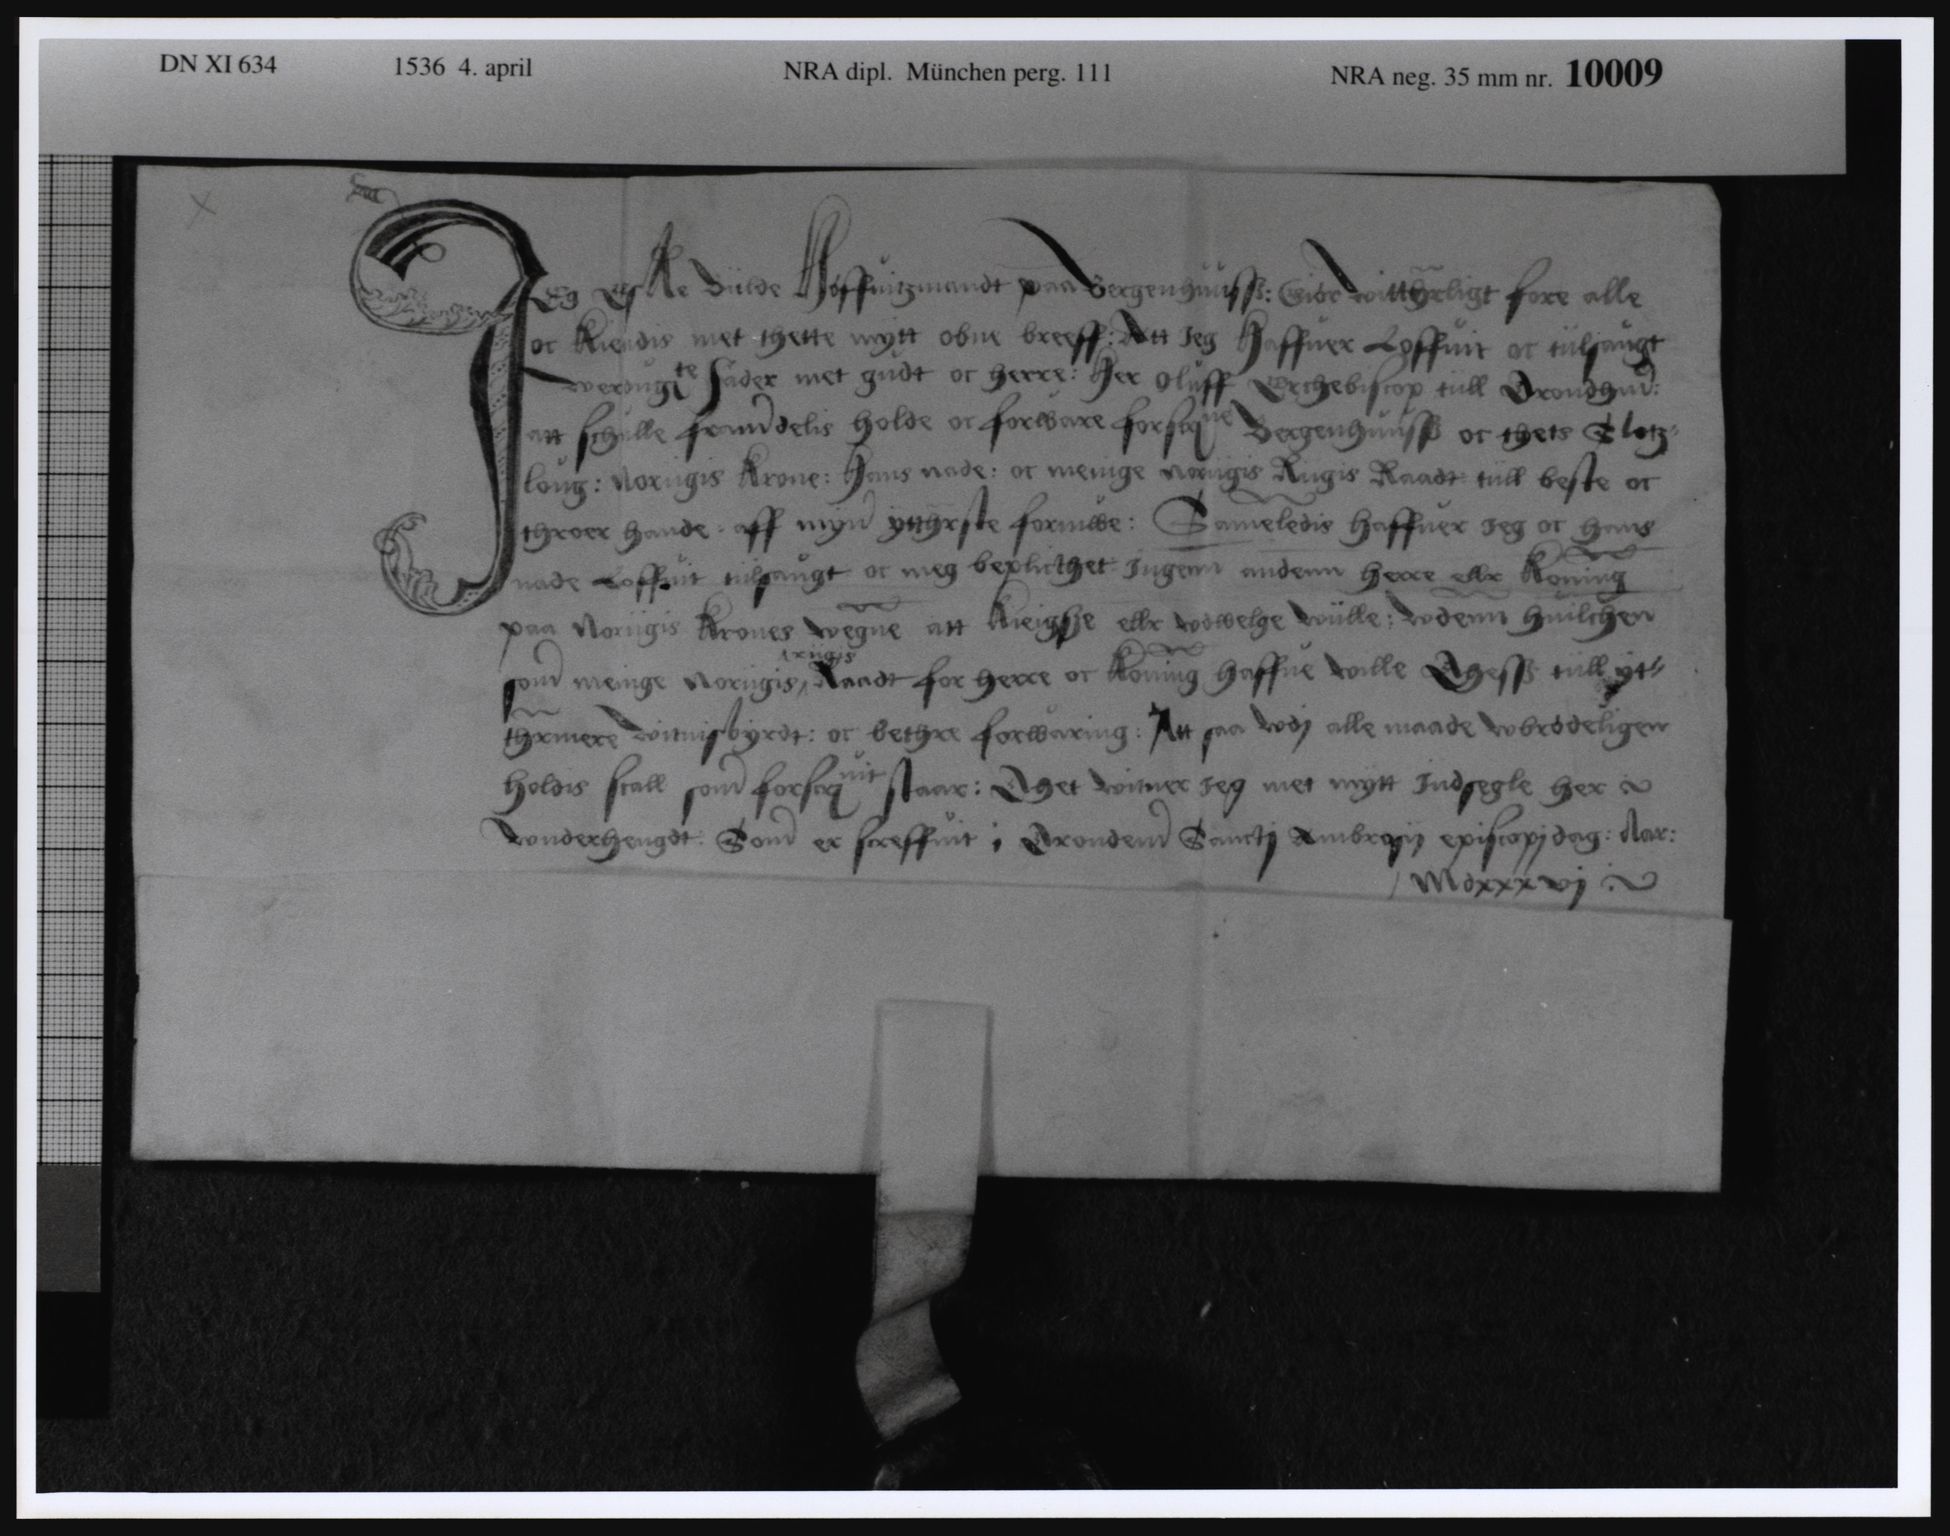 DN XI 634 1536 4. april NRA dipl. München perg. 111 NRA neg. 35 mm nr. 10009
Jeg Eske Biilde Høffuitzmandt paa Bergenhuuss: Giør wittherligt fore alle
oc kiendis met thette mytt obne breeff: Att Jeg Haffuer Loffuit oc tiilsaugt
werdugte fader met gudt oc herre: Her Oluff Erchebiscop tiill Trondhm:
att schulle framdelis holde oc forware forscrne Bergenhuuss oc thets Slotz-
loug: Noriigis krone: Hans nade: oc menige Noriigis Riigis Raadt tiill beste oc
throer hande aff myn ytthrste formwe: Sameledis haffuer Jeg oc hans
nade Loffuit tiilsaugt oc meg beplicthet Jngenn andenn herre ellr koning
paa Noriigis krones wegne att kieighse ellr wdwelge wiille: wdenn huilchen
som menige Noriigis riigis Raadt for herre oc koning haffue wille Thess tiill yt-
thrmere witnisbyrdt: oc bethre forwaring: Att saa wdj alle maade wbrødeligen
holdis scall som forscruit staar: Thet witner Jeg met mytt Jndsegle her
wnderhengdt: Som er screffuit i Trondem Sanctj Ambrosij episcopj dag: Aar:
Mdxxxvj